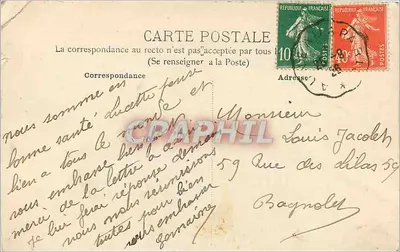 CARTE POSTALE
La correspondance au recto n'est pas acceptée par tous
(Se renseigner à la Poste)
Correspondance
Adresse
RÉPUBLIQUE FRANÇAISE
10
POSTES
RÉPUBLIQUE FRANÇAISE
POSTES
nous sommes en
bonne santé
bien a tous le monde et
nous embrasse bien
merci de la lettre a
je lui ferai réponse demain
nous nous réunissons
toutes pour bien
vous embrasser
Germaine
CPAPHIL
Monsieur
Louis Jacolet
59 Rue des Lilas 59
Bagnolet